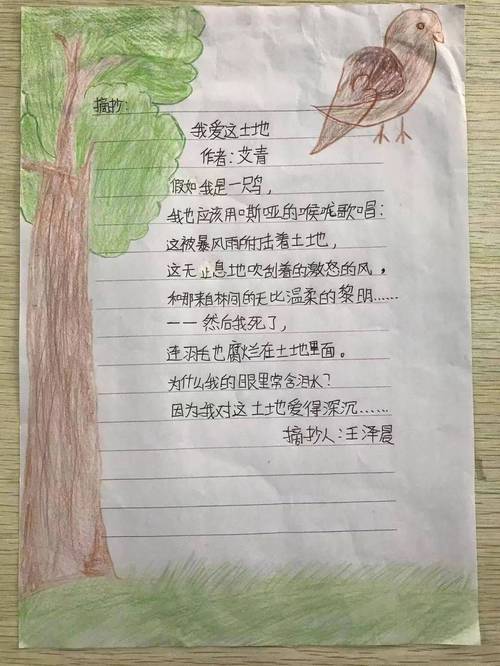 摘抄:
我爱这土地
作者:艾青
假如我是一只鸟,
我也应该用嘶哑的喉咙歌唱:
这被暴风雨所击着土地,
这无止息地吹刮着的激怒的风,
和那来自林间的无比温柔的黎明……
——然后我死了,
连羽毛也腐烂在土地里面。
为什么我的眼里常含泪水?
因为我对这土地爱得深沉……
摘抄人:王泽晨